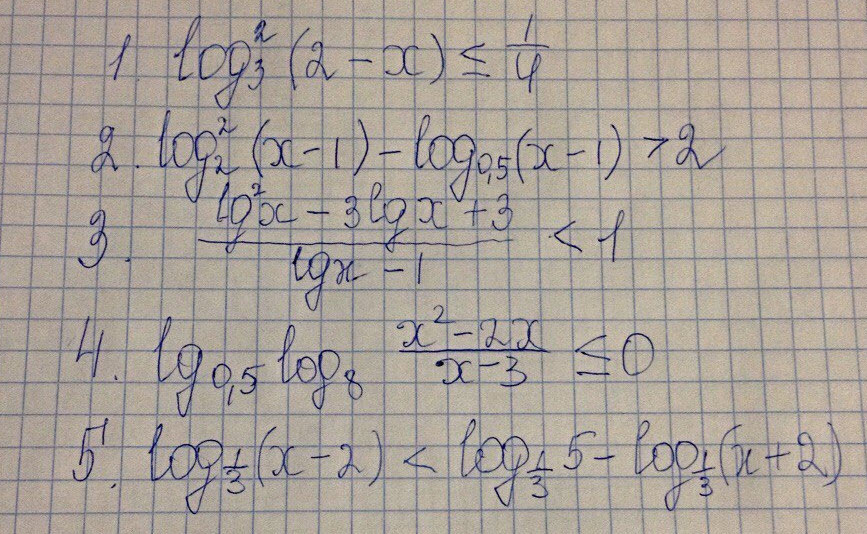 1. log₃²(2-x) ≤ 1/4
2. log₂²(x-1) - log₀,₅(x-1) > 2
3. (lg²x - 3lgx + 3)/(lgx - 1) < 1
4. lg₀,₅ log₈ (x² - 2x)/(x-3) ≤ 0
5. log₁/₃(x-2) < log₁/₃5 - log₁/₃(x+2)